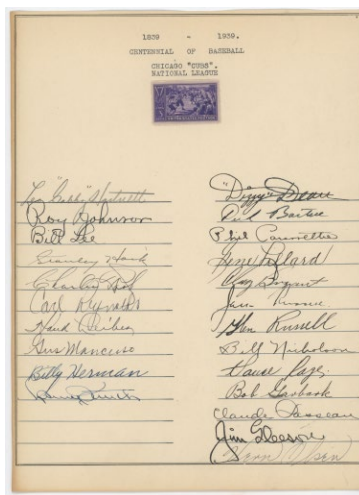 1839 - 1939.
CENTENNIAL OF BASEBALL
CHICAGO "CUBS".
NATIONAL LEAGUE
Leo "Gabby" Hartnett
Roy Johnson
Bill Lee
Stanley Hack
Charlie Root
Carl Reynolds
Gus Mancuso
Billy Herman
"Dizzy" Dean
Dick Bartell
Phil Cavarretta
Gene Lillard
Clay Bryant
Glen Russell
Bill Nicholson
Vance Page
Bob Garbark
Claude Passeau
Jim Gleeson
Vern Olsen